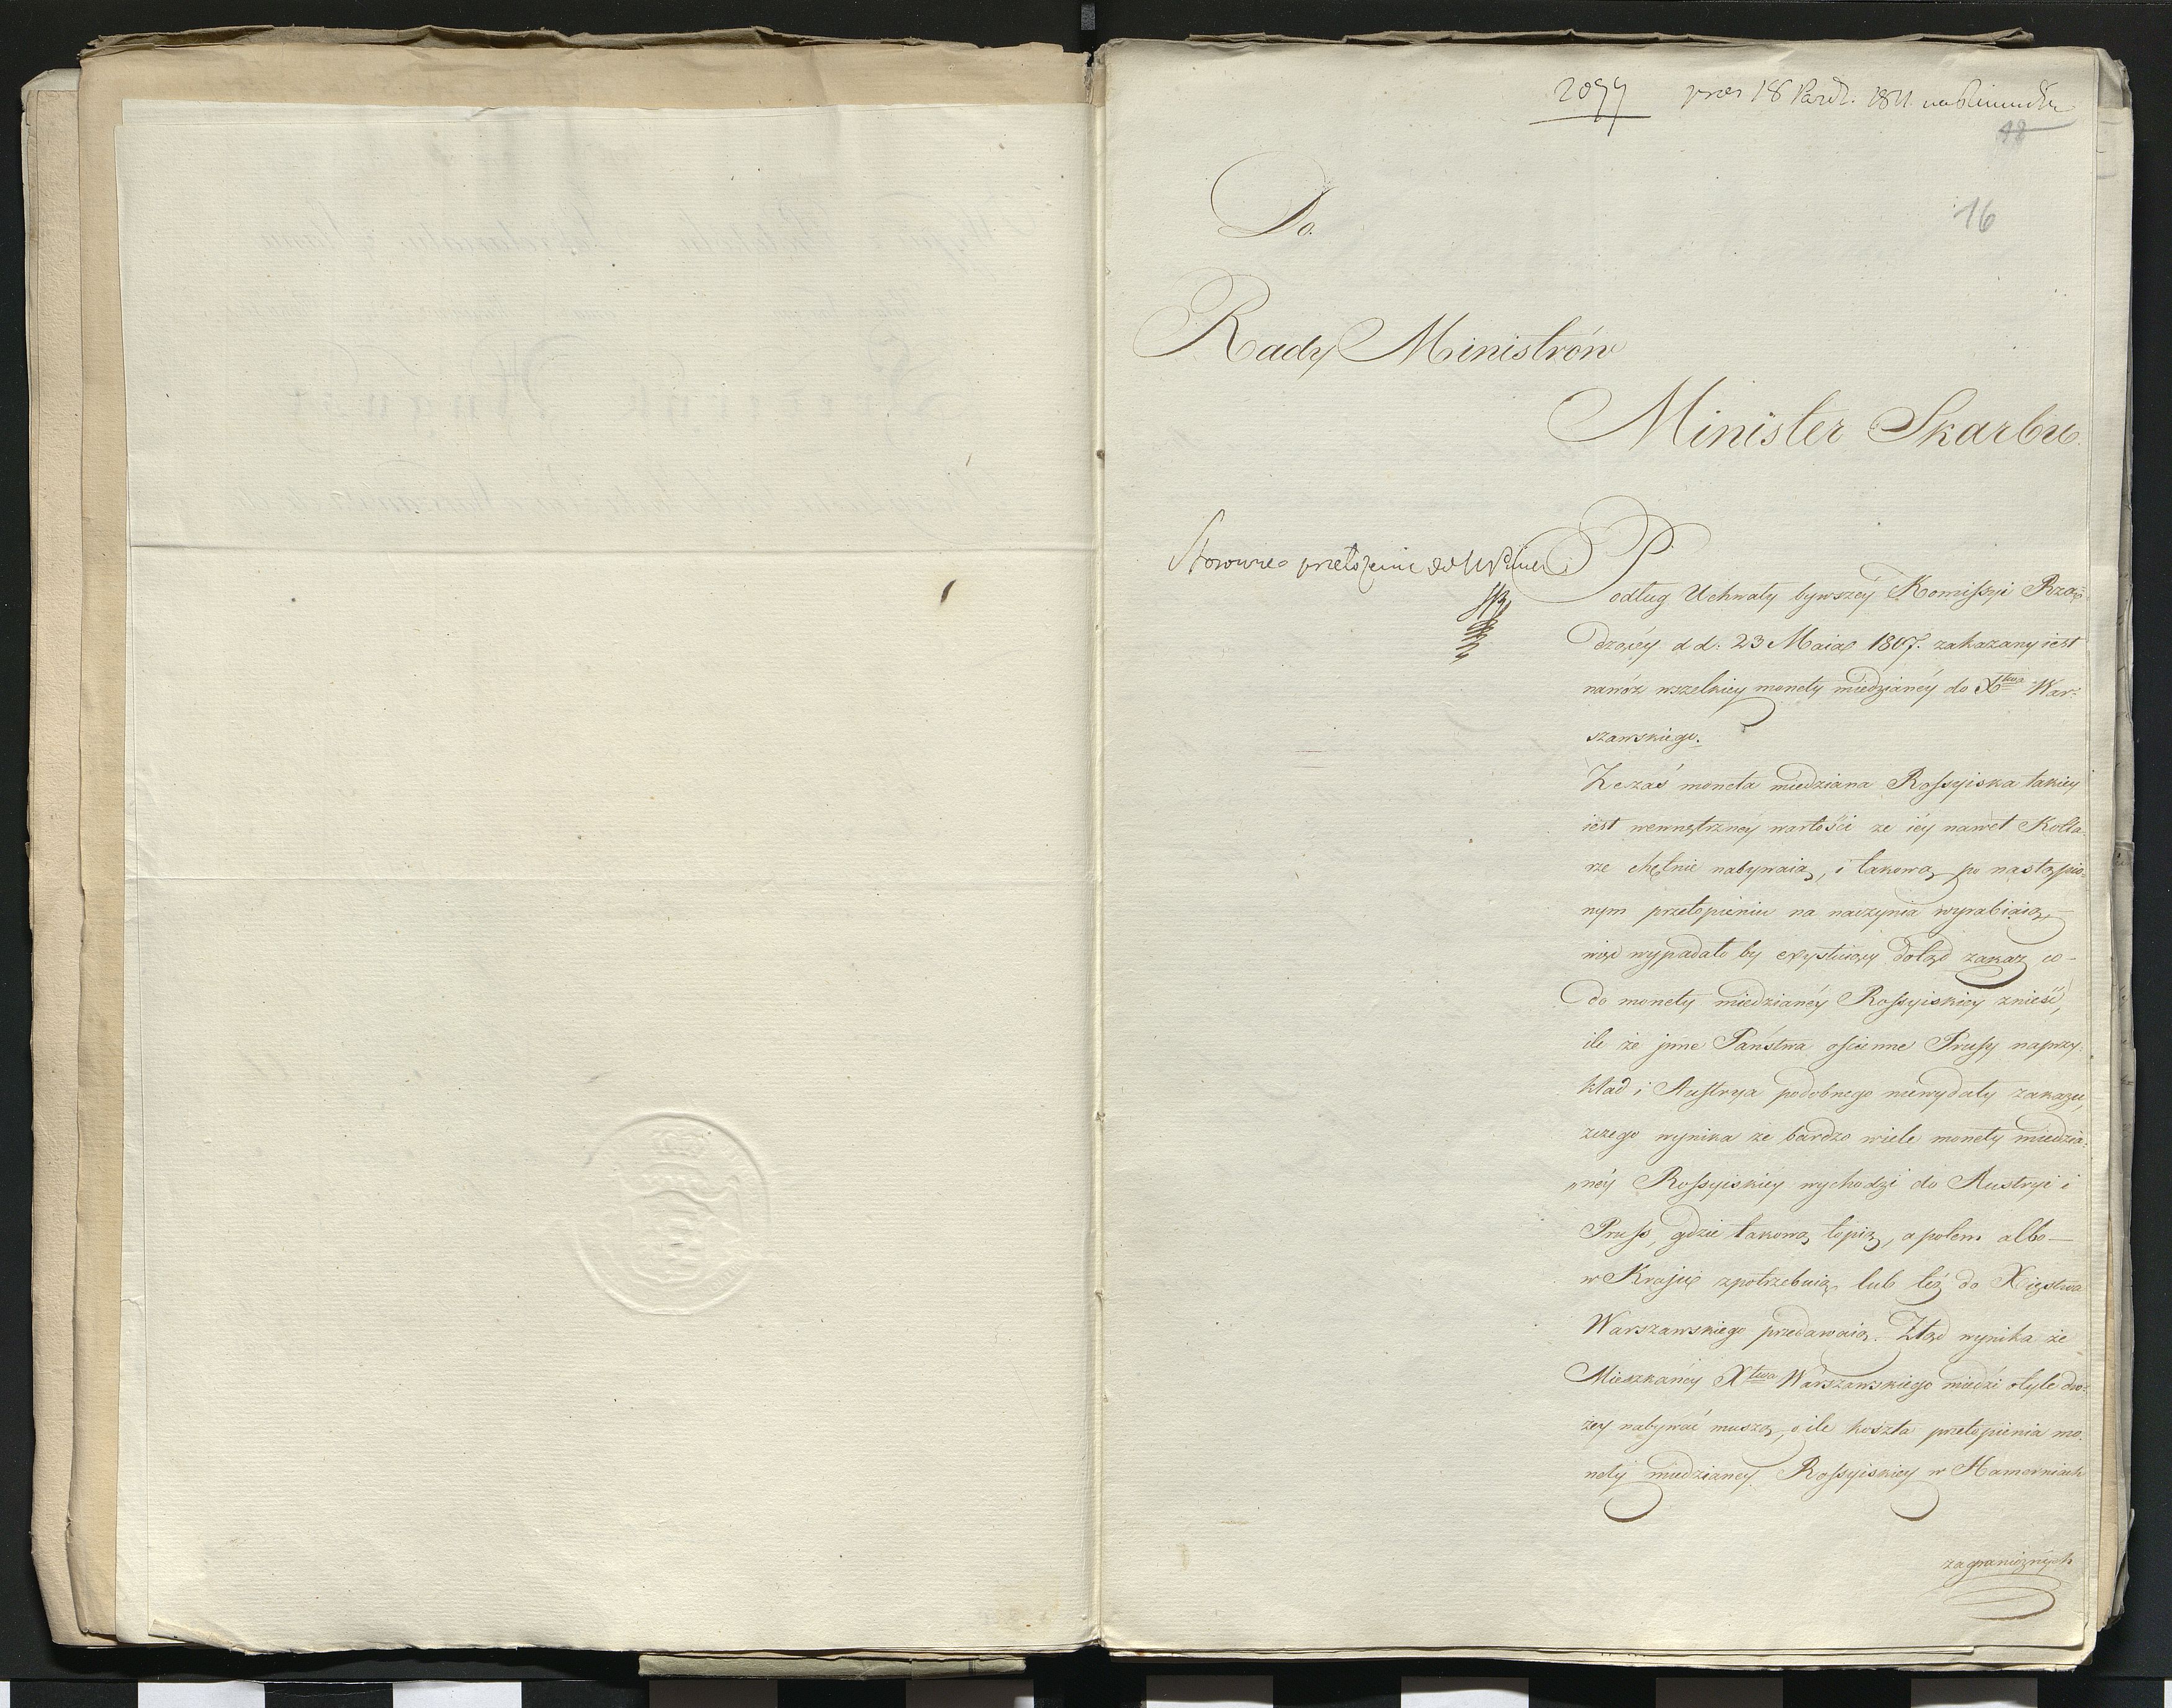 2077 prez 18 Paźd. 1811.
18
16
Do
Rady Ministrów
Minister Skarbu.
Stosowne przełożenie do
Podług Uchwały bywszéy Komissyi Rzą-
dzącéy d d: 23 Maia 1807. zakazany iest
nawóz wszelkiey monety miedzianéy do Xtwa War-
szawskiego.
Że zaś moneta miedziana Rossyiska takiey
iest wewnętrzney wartości że iéy nawet Kotla-
rze chętnie nabywaią, i takową po nastąpio-
nym przetopieniu na naczynia wyrabiaią,
więc wypadało by exystuiący dotąd zakaz co-
do monety miedzianéy Rossyiskiey znieść,
ile że jnne Państwa ościenne Prussy naprzy-
kład i Austrya podobnego niewydały zakazu,
zczego wynika że bardzo wiele monety miedzia-
néy Rossyiskiey wychodzi do Austryi i
Pruss, gdzie takową topią, a potem albo
w Kraju zpotrzebuią lub téż do Xięstwa
Warszawskiego przedawaią. Ztąd wynika że
Mieszkańcy Xtwa Warszawskiego miedzi otyle dro-
żey nabywać muszą, o ile koszta przetopienia mo-
nety miedzianey Rossyiskiey w Hamerniach
zagranicznych